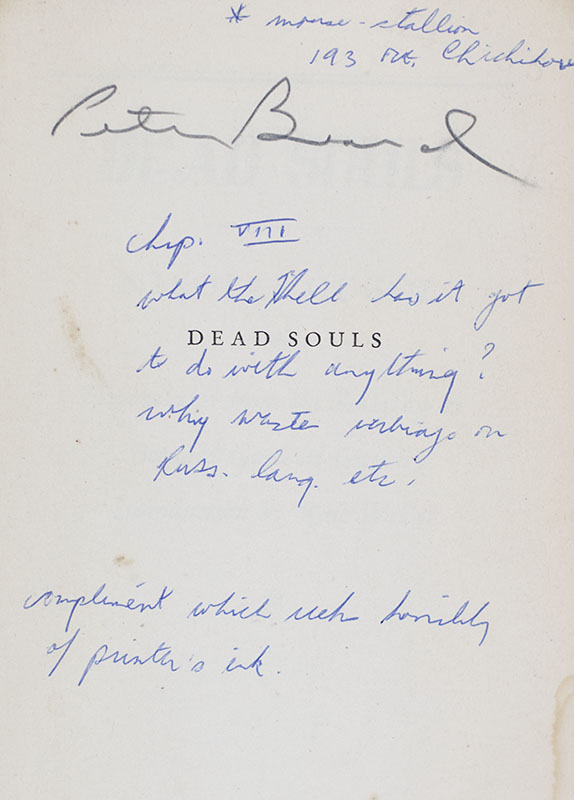 * mouse-stallion
193 re. Chichikov
Peter Beard
chp. VIII
what the hell has it got
DEAD SOULS
to do with anything?
why waste verbiage on
Russ. lang. etc.
compliment which reeks horribly
of printer's ink.